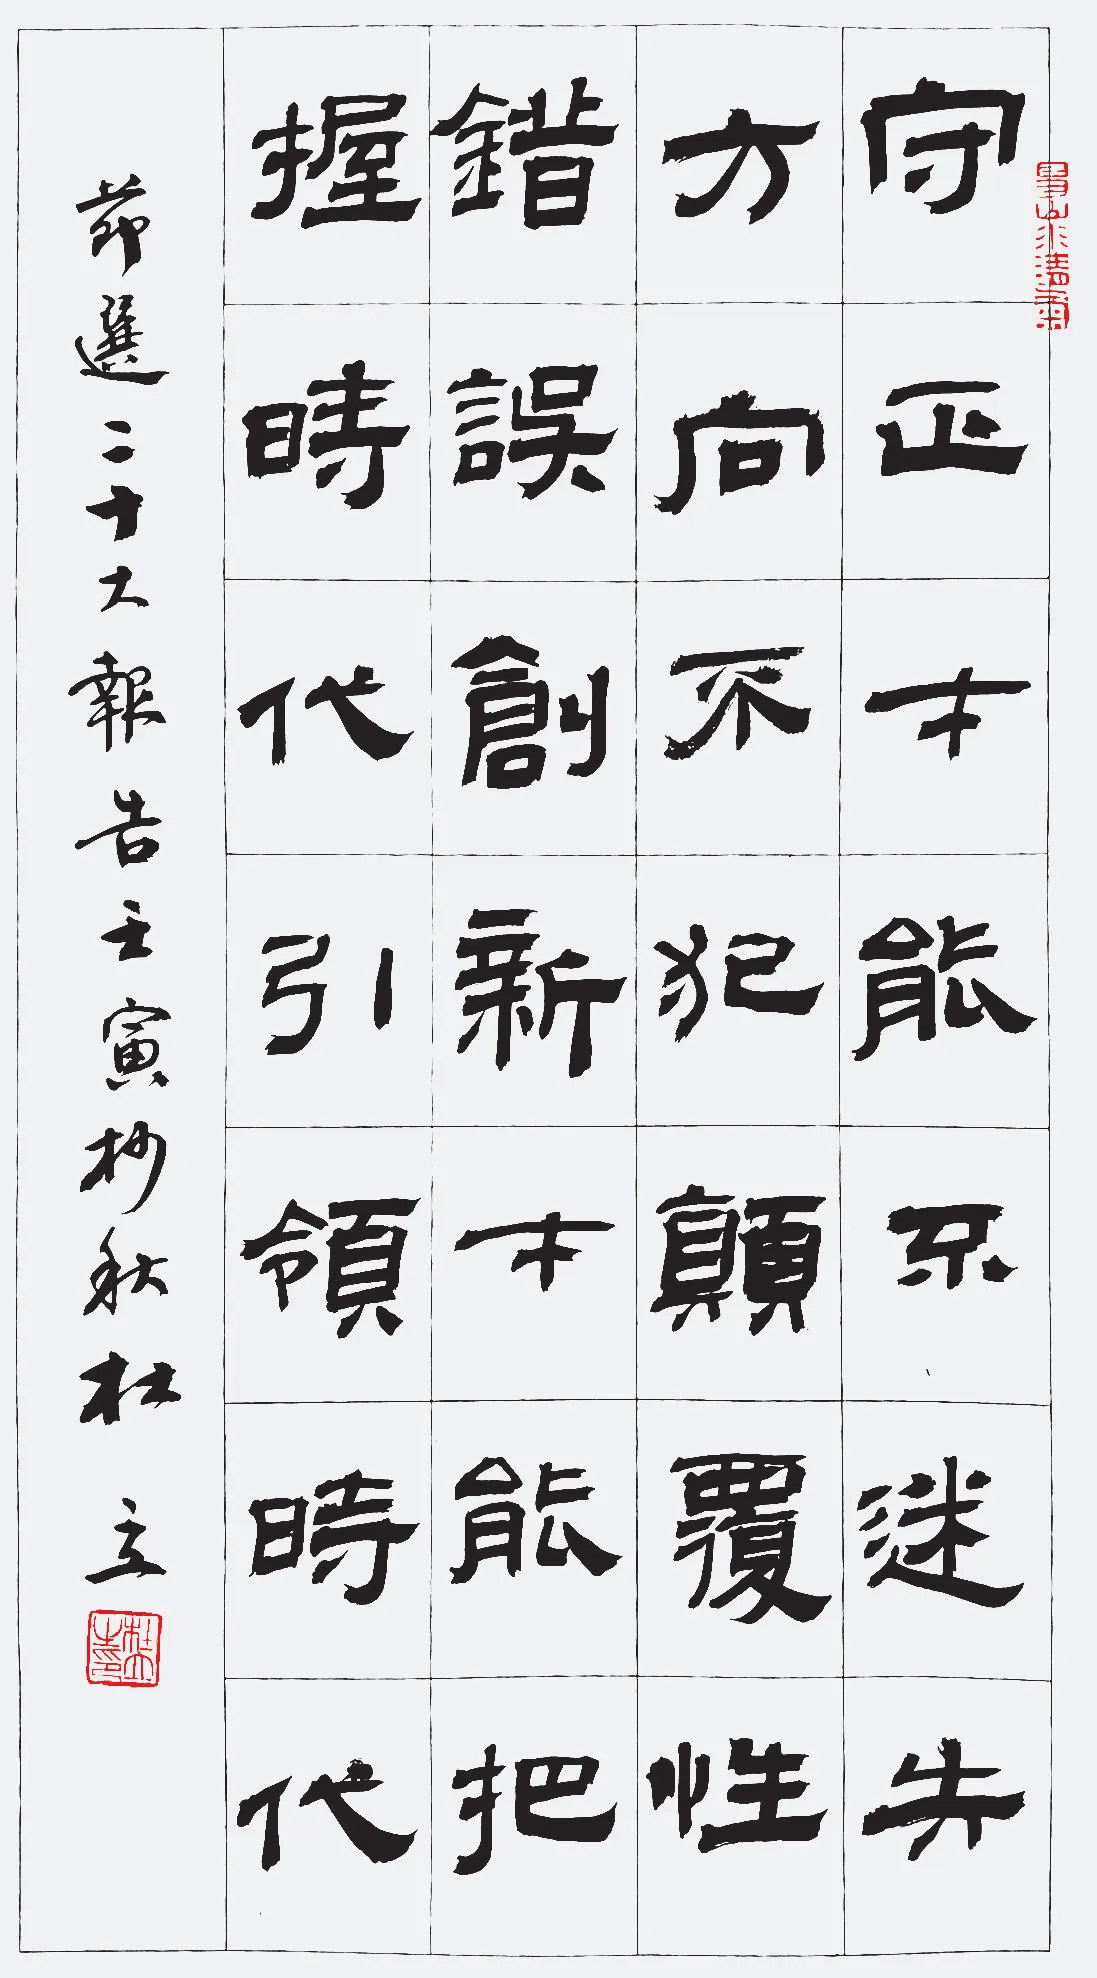 守正才能不迷失
方向不犯顛覆性
錯誤創新才能把
握時代引領時代
莭選二十大報告壬寅杪秋杜立